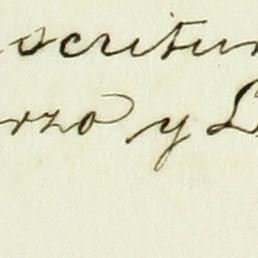 scritur
rzo y L